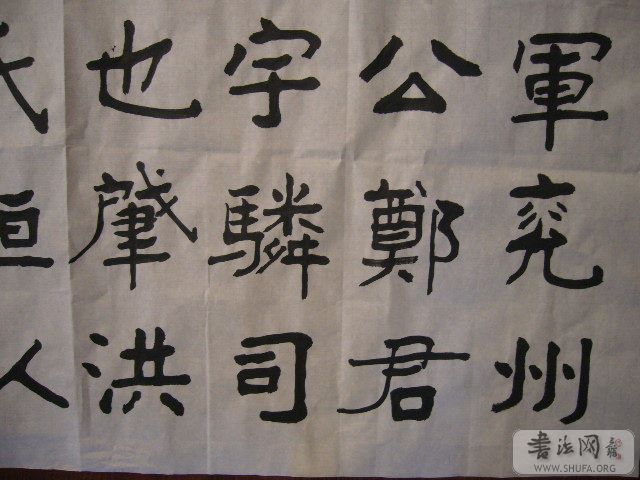 軍兖州
公鄭君
字驎司
也肇洪
人
書法网
WWW.SHUFA.ORG